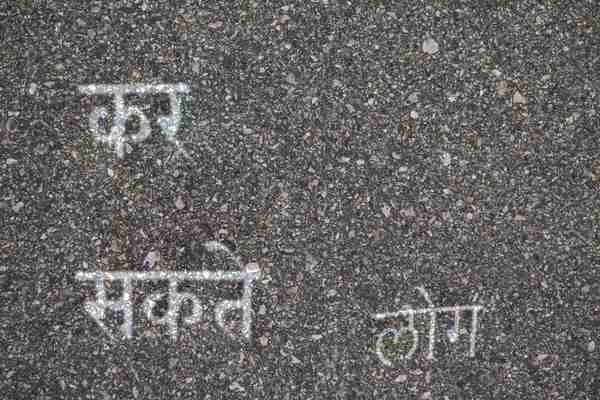 कर
सकते
लोग